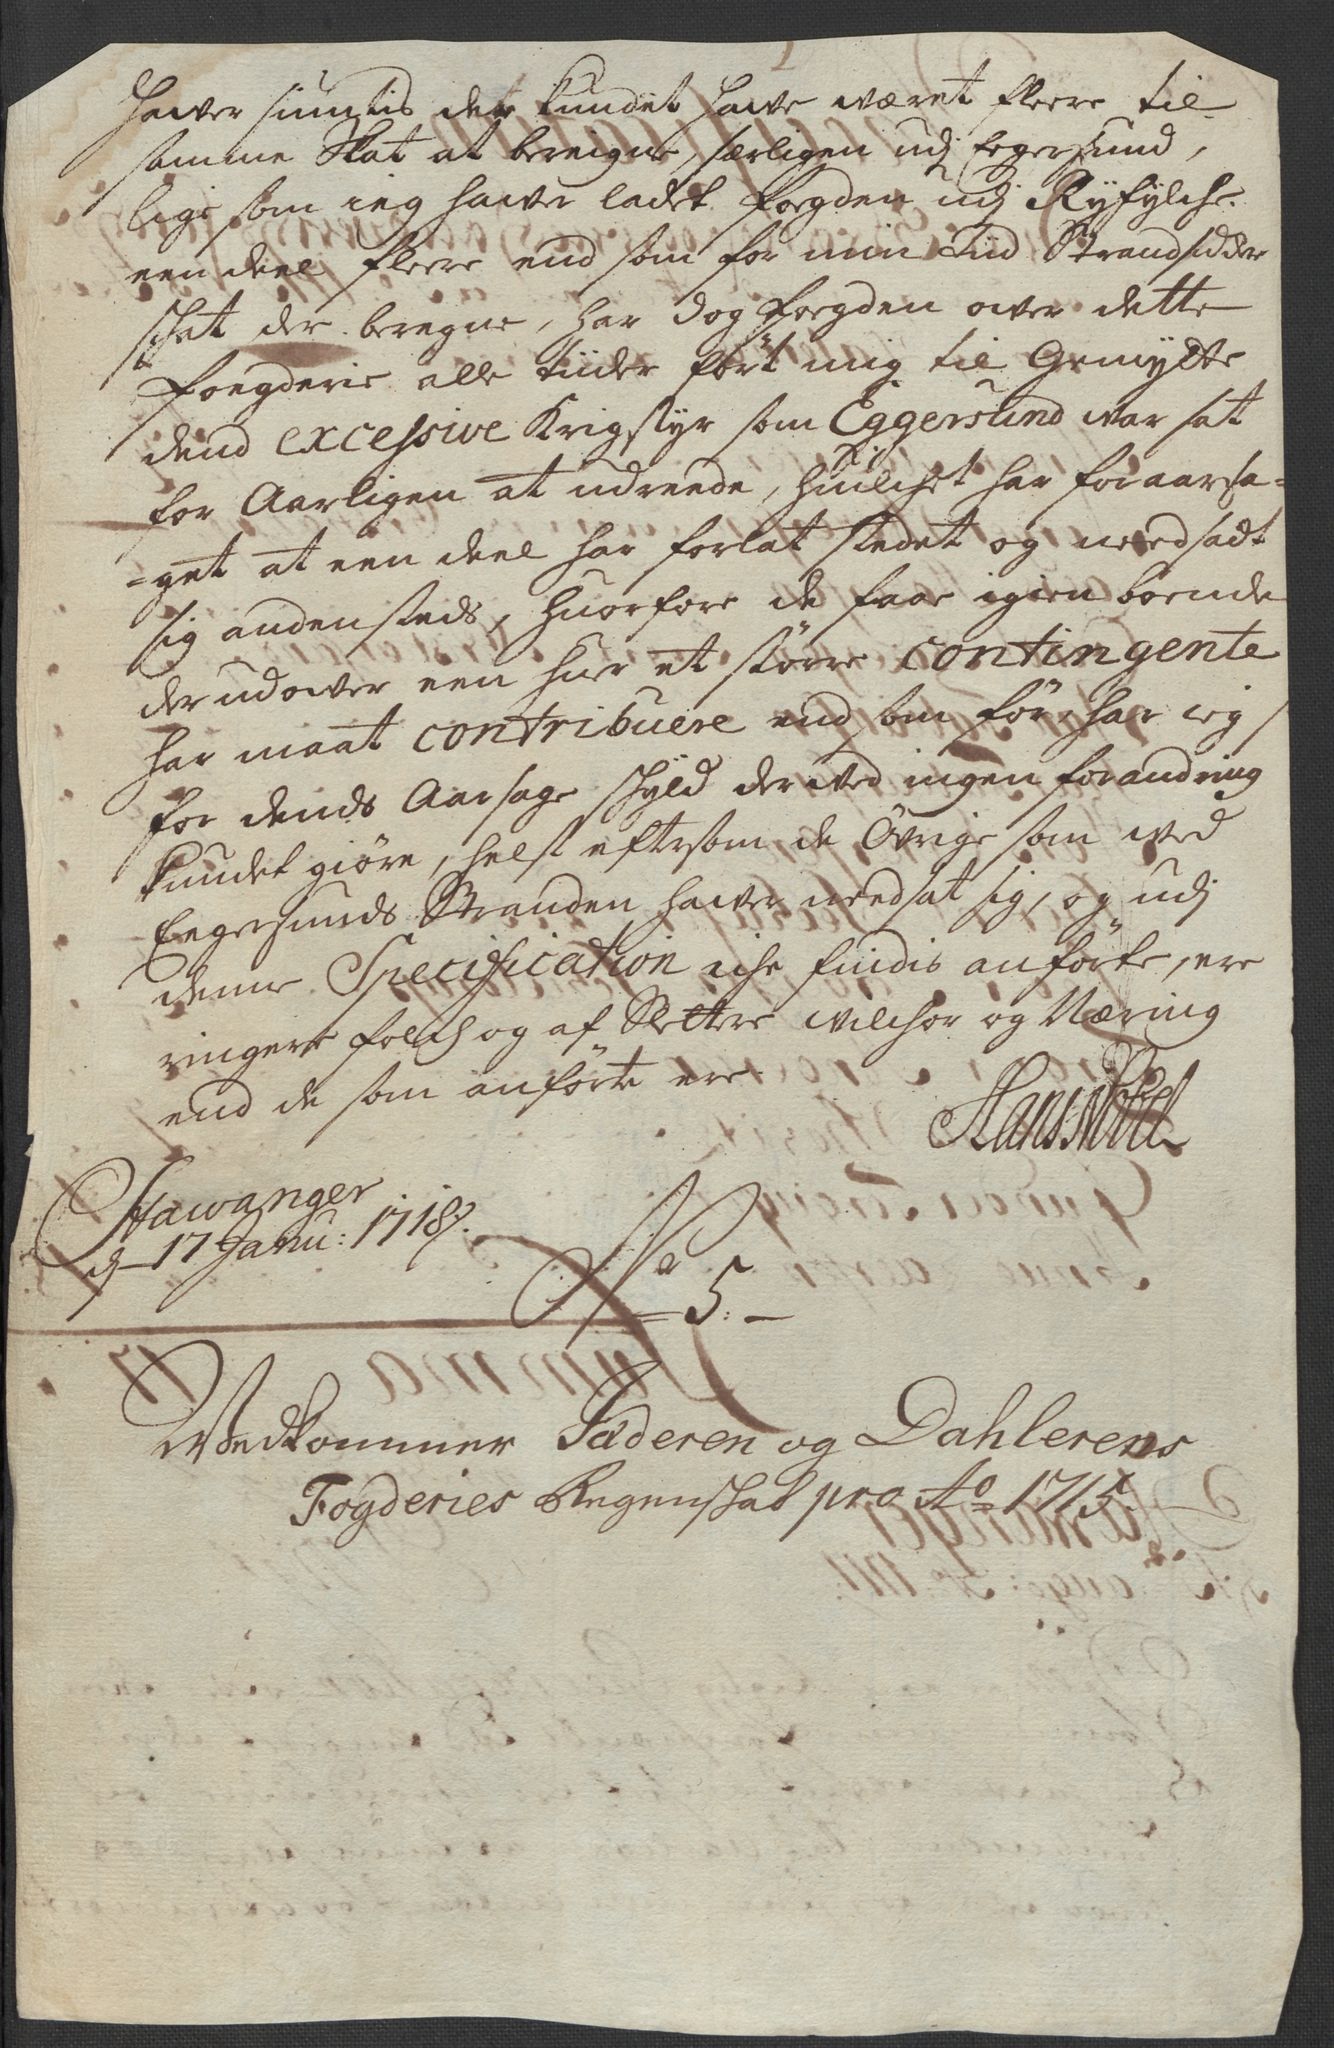 hawer siuntis der kundet hawe wæret fleere til
samme Skat at bereigne, særligen udj Eegersund,
lige som ieg hawer ladet Foegden udj Ryfylche
een deel fleere end som for min tiid Strandsidder
schat der beregne, har dog Foegden ower dette
Foegderie alle tiider ført mig til Gemytte
dend excessive Krigstyr som Eggersund war sat
for Aarligen at udreede, huilchet har foraarsa-
-get at een deel har forlat stedet og needsadt
sig andensteds, huorfore de faae igien boende
derudower een huer et større contingente
har maat contribuere end som før, har ieg
for dends Aarsage schyld derwed ingen forandring
kundet giøre, helst eftersom de Övrige som wed
Eegersunds Stranden hawer needsat sig, og udj
denne Specification iche findis anförte, ere
ringere folch og af Slettere wilchor og Næring
end de som anförte ere.
Hans Nobel
Stawanger
d 17 Janu: 1718.
No 5.
Wedkommer Jæderen og Dahlerens
Fogderies Regenschab pro Ao 1715.